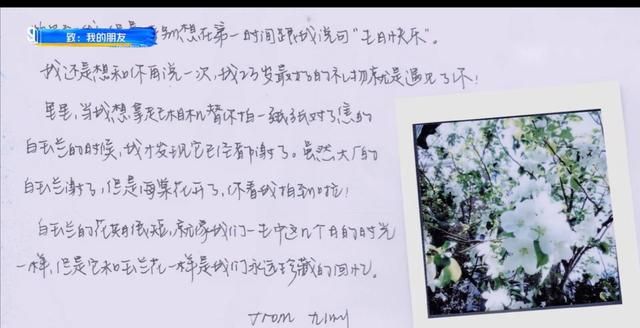 致：我的朋友
别想在第一时间跟我说句“生日快乐”。
我还是想和你再说一次，我23岁最好的礼物就是遇见了你！
里里，当我想拿起相机替你拍一张纸对了焦的
白玉兰的时候，我才发现它已经都谢了。虽然大厂的
白玉兰谢了，但是海棠花开了，你看我拍到啦！
白玉兰的花期很短，就像我们一生中这几个月的时光
一样，但是它和玉兰花一样是我们永远珍藏的回忆。
from